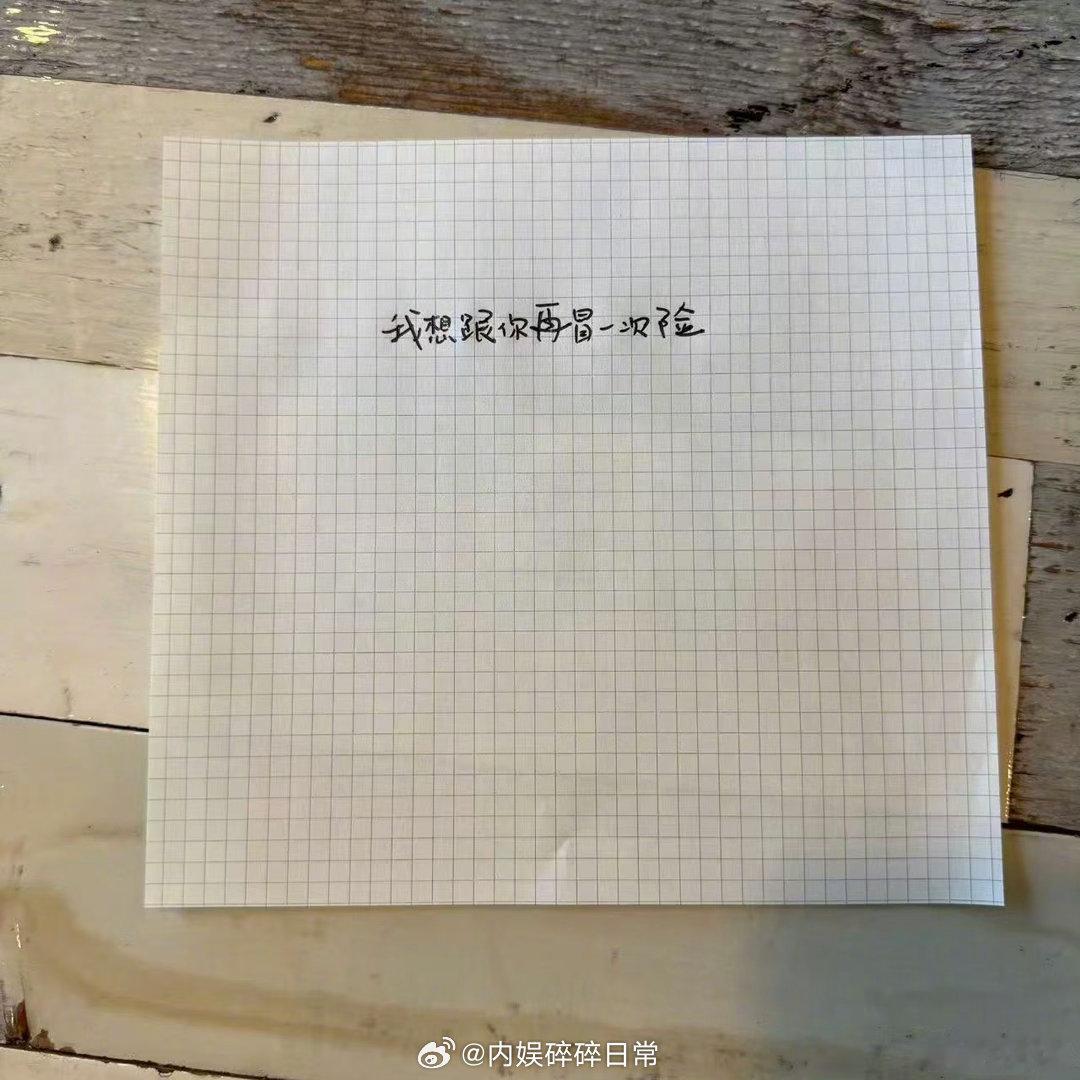 我想跟你再冒一次险
@内娱碎碎日常